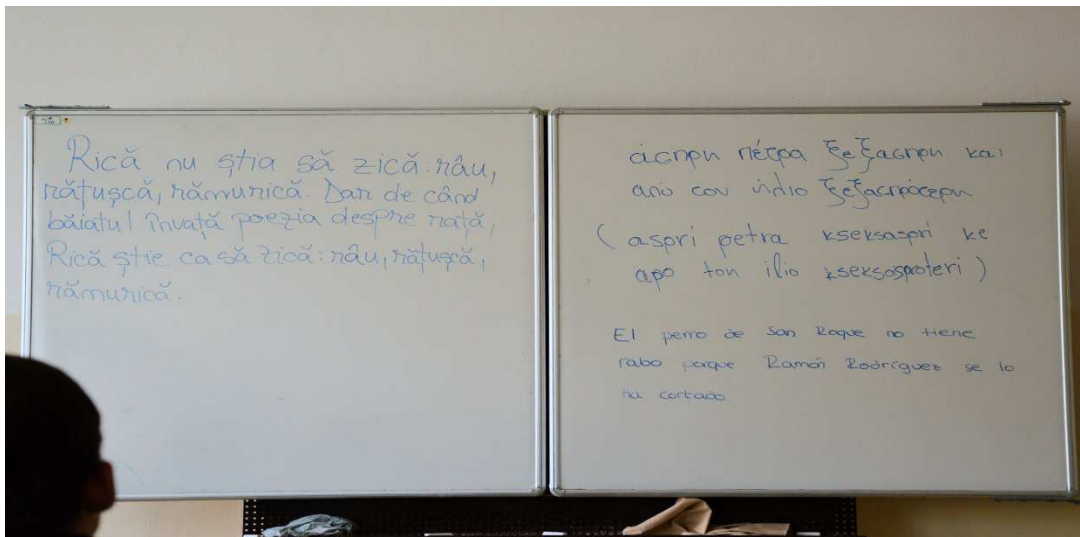 Rică nu știa să zică: râu,
rățușcă, rămurică. Dar de când
băiatul învață poezia despre rață,
Rică știe ca să zică: râu, rățușcă,
rămurică.
άσπρη πέτρα ξεξασπρη και
από τον ήλιο ξεξασπρότερη
(aspri petra kseksaspri ke
apo ton ilio kseksosproteri)
El perro de San Roque no tiene
rabo porque Ramón Rodríguez se lo
ha cortado